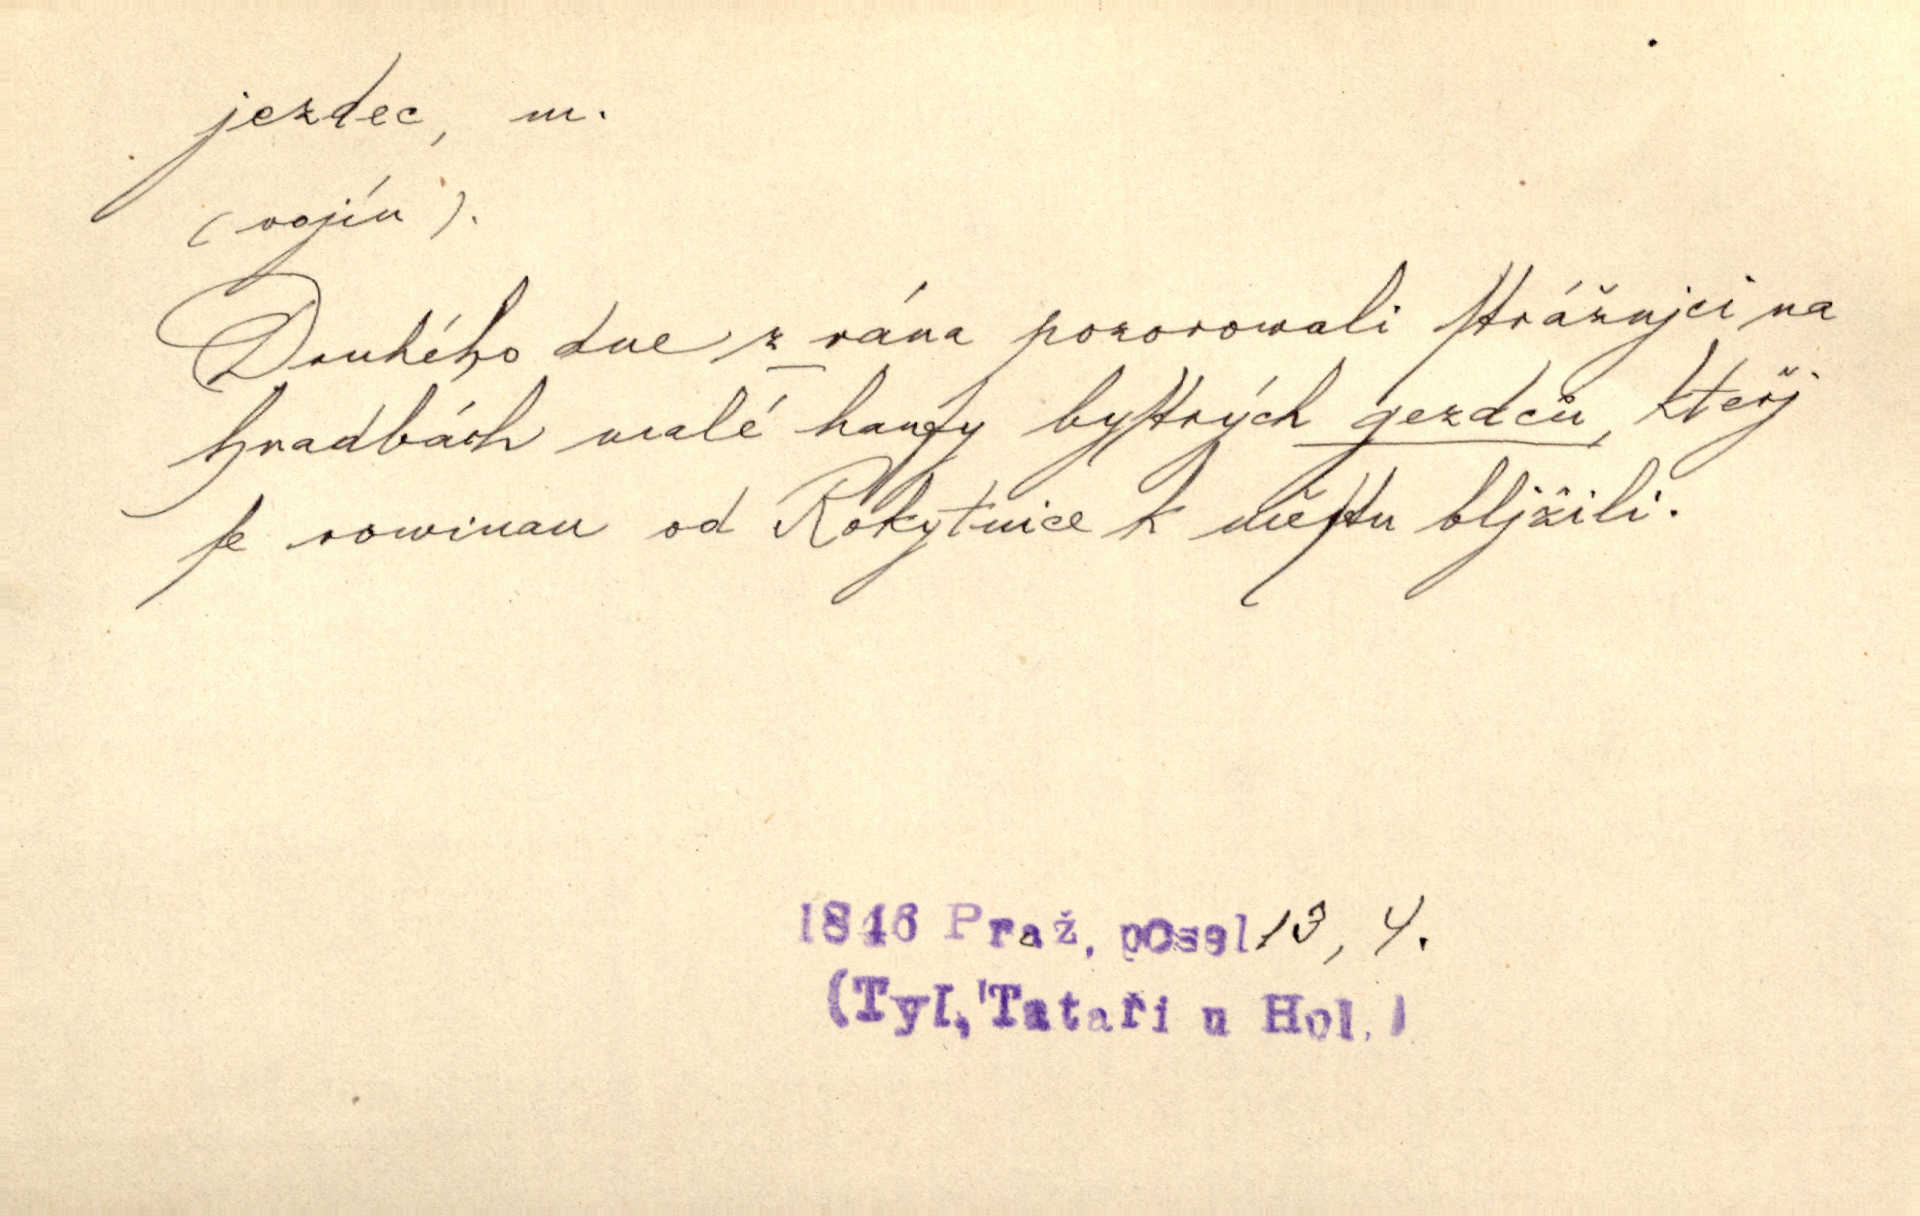 jezdec, m.
(vojín).
Druhého dne z rána pozorowali ſtrážnjci na
hradbách malé haufy byſtrých gezdců, kteřj
ſe rowinau od Rokytnice k měſtu bljžili.
1846 Praž. posel 13, 4.
(Tyl, Tataři u Hol.)